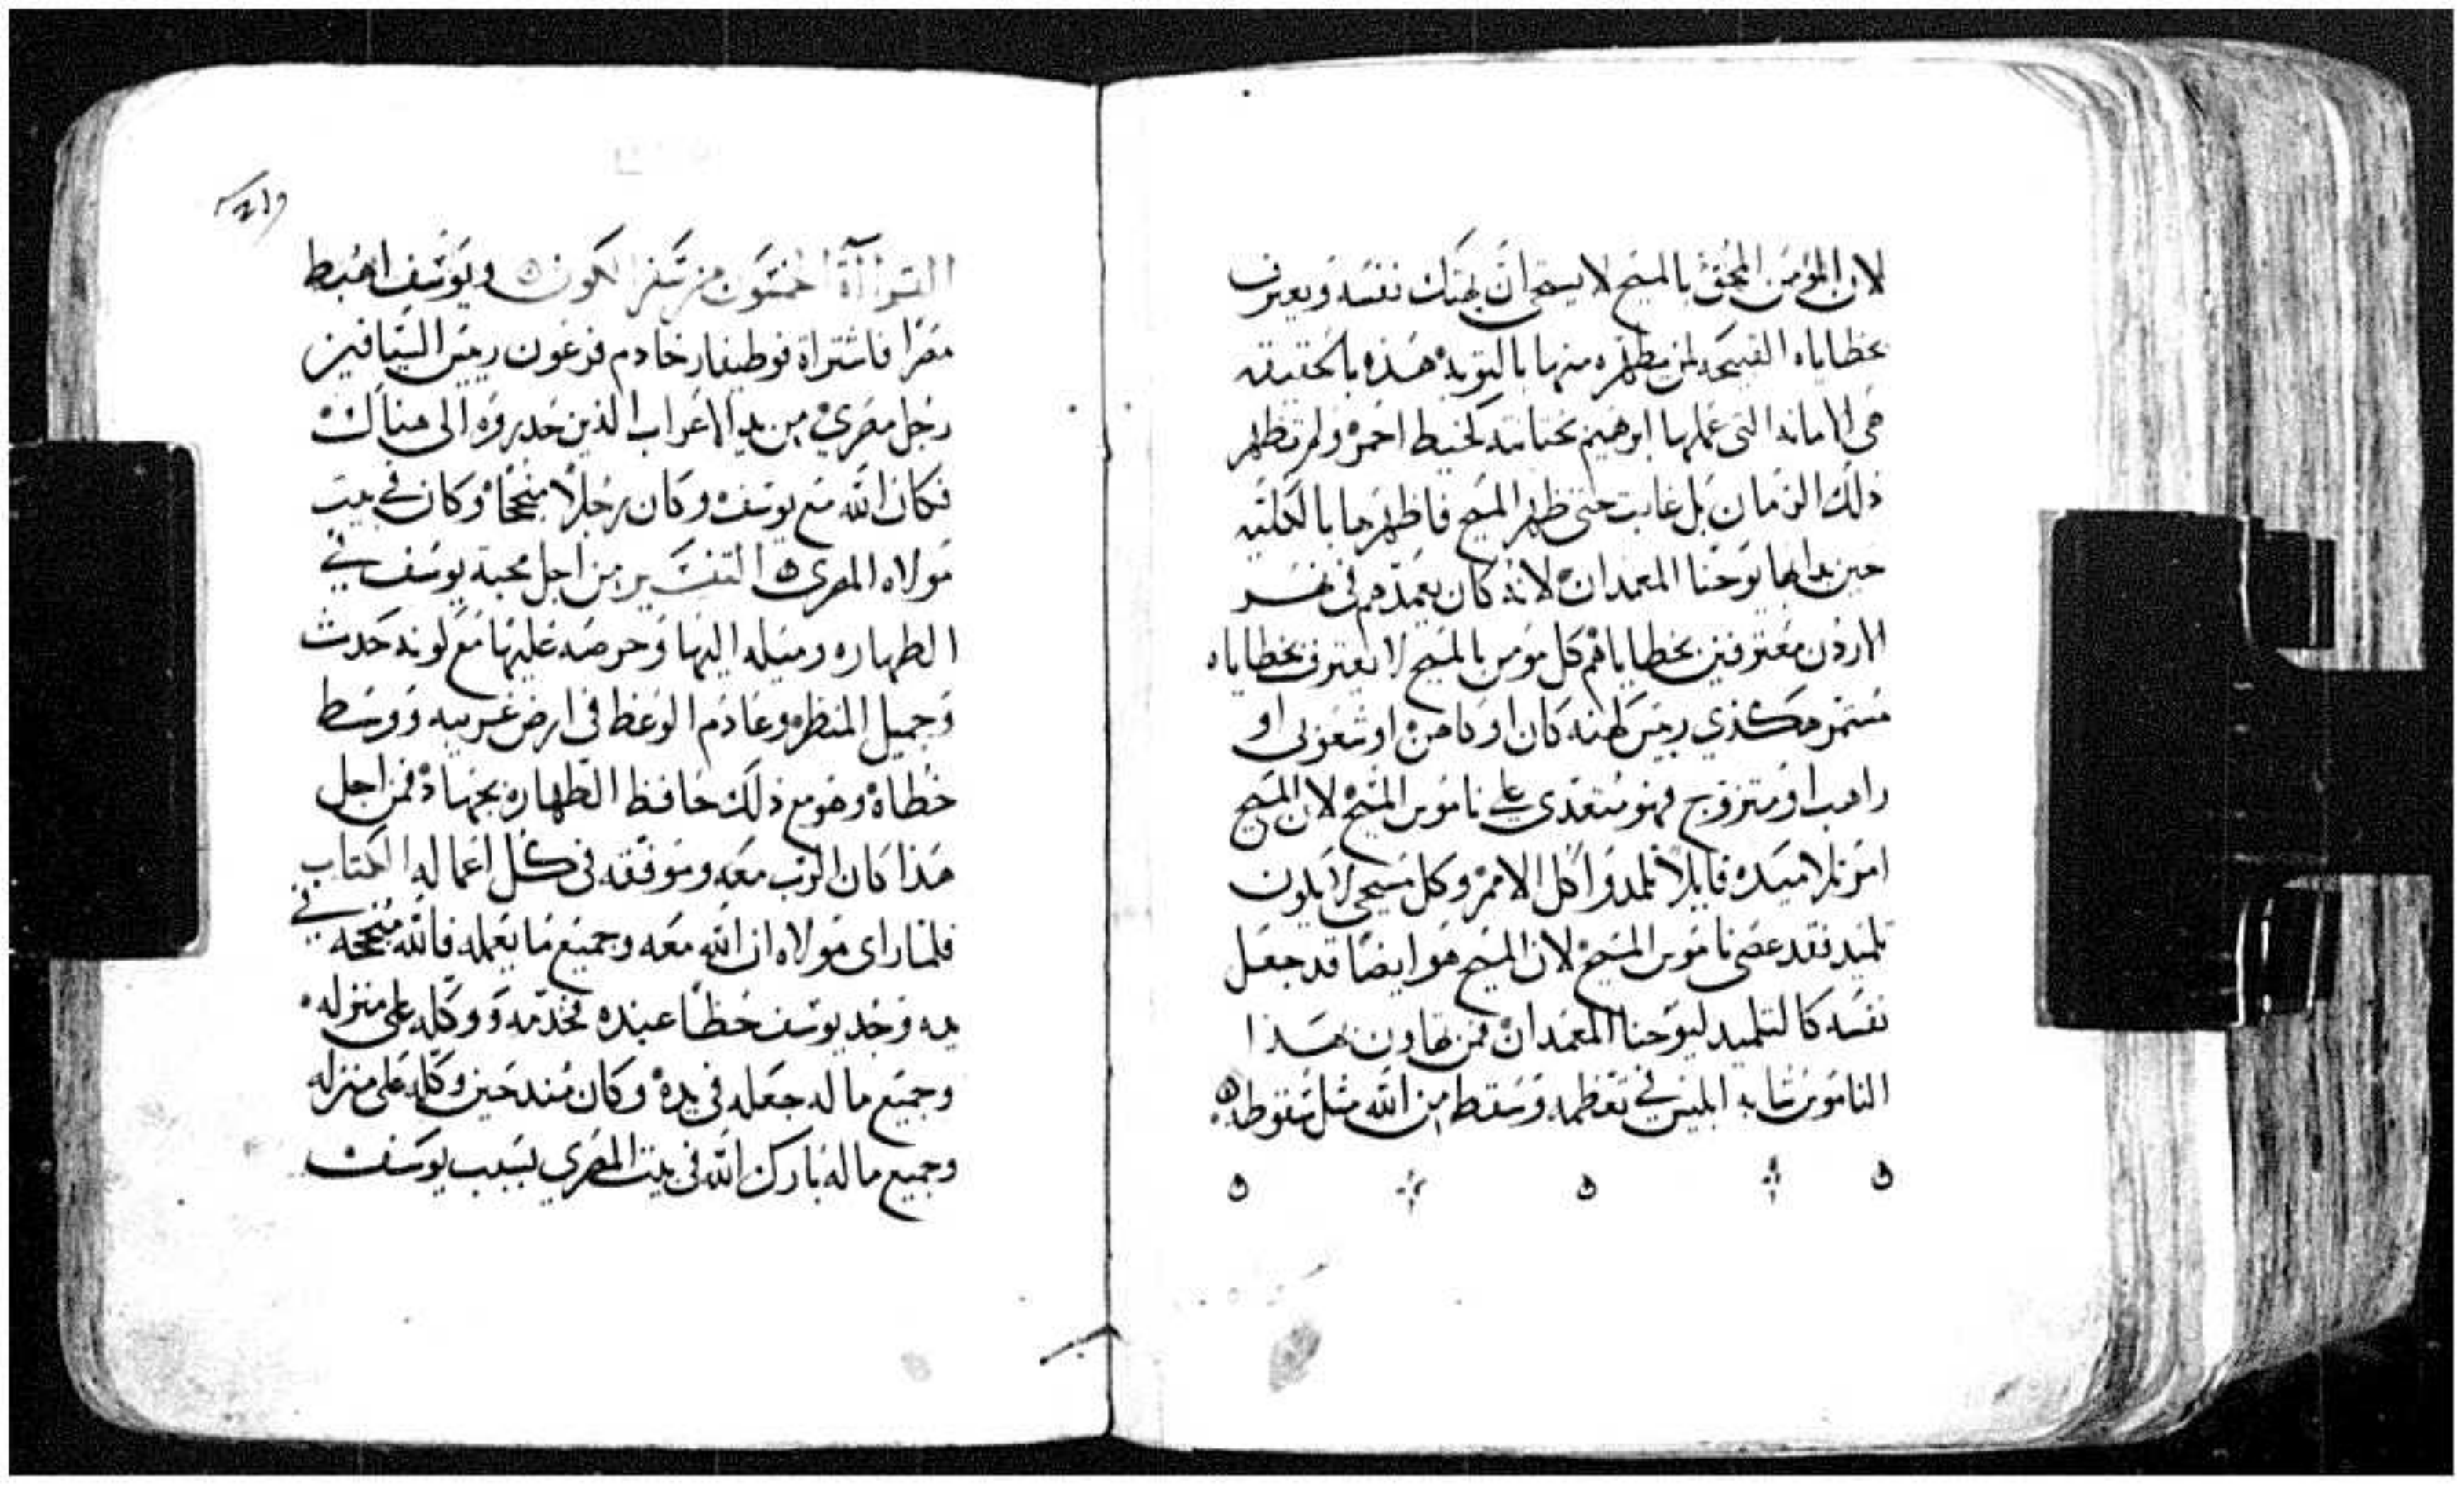 لان المؤمن المحق بالمسيح لا يستحى ان يهتك نفسه ويعترف
بخطاياه القبيحه لمن يطهره منها بالتوبه هذه بالحقيقه
هى الامانه التى عملها ابرهيم بختانته كخيط احمر ولم تظهر
ذلك الزمان بل غابت حتى ظهر المسيح فاظهرها بالكليه
حين بداها يوحنا المعمدان لانه كان يعمدهم فى نهر
الاردن معترفين بخطاياهم كل مومن بالمسيح لا يعترف بخطاياه
مستمر هكذى رييس كهنه كان او كاهن او شعوبى او
راهب او متزوج فهو متعدى على ناموس المسيح لان المسيح
امر تلاميده قايلا تلمدوا كل الامم وكل مسيحى لا يكون
تلميد فقد عصى ناموس المسيح لان المسيح هو ايضا قد جعل
نفسه كالتلميد ليوحنا المعمدان فمن تهاون بهذا
الناموس شابه ابليس فى تعظمه وسقط من الله مثل سقوطه
القرااة الخمسون من سفر الكون ويوسف اهبط
مصرا فاشتراة فوطيفار خادم فرعون رييس السيافين
رجل مصري من يد الاعراب الذين حدروه الى هناك
فكان الله مع يوسف وكان رجلا منجحا وكان فى بيت
مولاه المصرى التفسير من اجل محبة يوسف فى
الطهاره وميله اليها وحرصه عليها مع كونه حدث
وجميل المنظر وعادم الوعظ فى ارض غريبه ووسط
خطاة وهو مع ذلك حافظ الطهاره بجهاد فمن اجل
هذا كان الرب معه وموفقه فى كل اعماله الكتاب
فلما راى مولاه ان الله معه وجميع ما يعمله فالله منجحه فى
يده وجد يوسف حظا عنده فخدمه ووكله على منزله
وجميع ما له جعله فى يده وكان مند حين وكله على منزله
وجميع ما له بارك الله فى بيت المصري بسبب يوسف